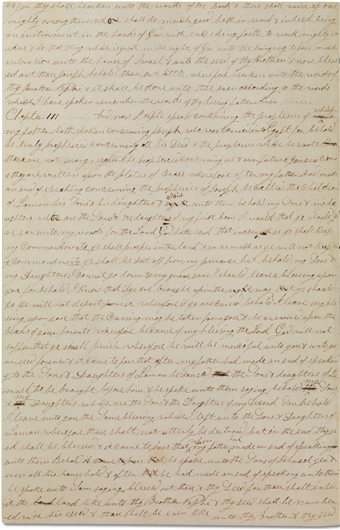 for thy seed shall hearken unto the words of the book & there shall raise up one
mighty among them & shall do much good both in word & in deed being
an instrument in the hands of God with exceeding faith to work mighty
& do that thing which is great in the sight of God unto the bringing to pass much
restoration unto the house of Israel & unto the seed of thy Brethren & now blessed
art thou Joseph behold thou art little wherefore hearken unto the words of
thy Brother Nephi & it shall be done unto thee even according to the words
which I have spoken remember the words of thy dying father Amen
Chapter III And now I Nephi speak concerning the prophecies of which
my father hath spoken concerning Joseph who was carried into Egypt for behold
he truly prophesied concerning all his seed & the prophecies which he wrote
there are not many greater & he prophesied concerning us & our future generations
& they are written upon the plates of Brass wherefore after my father had made
an end of speaking concerning the prophecies of Joseph he called the children
of Laman his Sons & his daughters & unto them behold my Sons & my
Daughters which are the Sons & the daughters of my first born I would that ye should give
ear unto my words for the Lord God hath said that inasmuch as ye shall keep
my Commandments ye shall prosper in the land & in as much as ye will not keep my
Commandments ye shall be cut off from my presence but behold my Sons &
my Daughters I cannot go down to my grave save I should leave a blessing upon
you for behold I know that if ye are brought up in the way ye should
go ye will not depart from it wherefore if ye are cursed behold I leave my bless
ing upon you that the Cursing may be taken from you & be answered upon the
heads of your parents wherefore because of my blessing the Lord God will not
suffer that ye shall perish wherefore he will be merciful unto you & unto your
seed forever & it came to pass that after my father had made an end of speaking
to the Sons & Daughters of Laman he caused the Sons & Daughters of Le
muel to be brought before him & he spake unto them saying behold my Sons
& my Daughters which are the Sons & the Daughters of my Second Son behold
I leave unto you the same blessing which I left unto the Sons & Daughters of
Laman wherefore thou shalt not utterly be destroyed but in the end thy se
ed shall be blessed & it came to pass that when my father had made an end of speaking
unto them behold he spake unto the Sons of Ishmael yea &
even all his household & after he had made an end of speaking unto them
he spake unto Sam saying blessed art thou & thy seed for thou shalt inherit
the land like unto thy Brother Nephi & thy seed shall be numbered
with his seed & thou shalt be even like unto thy Brother & thy seed